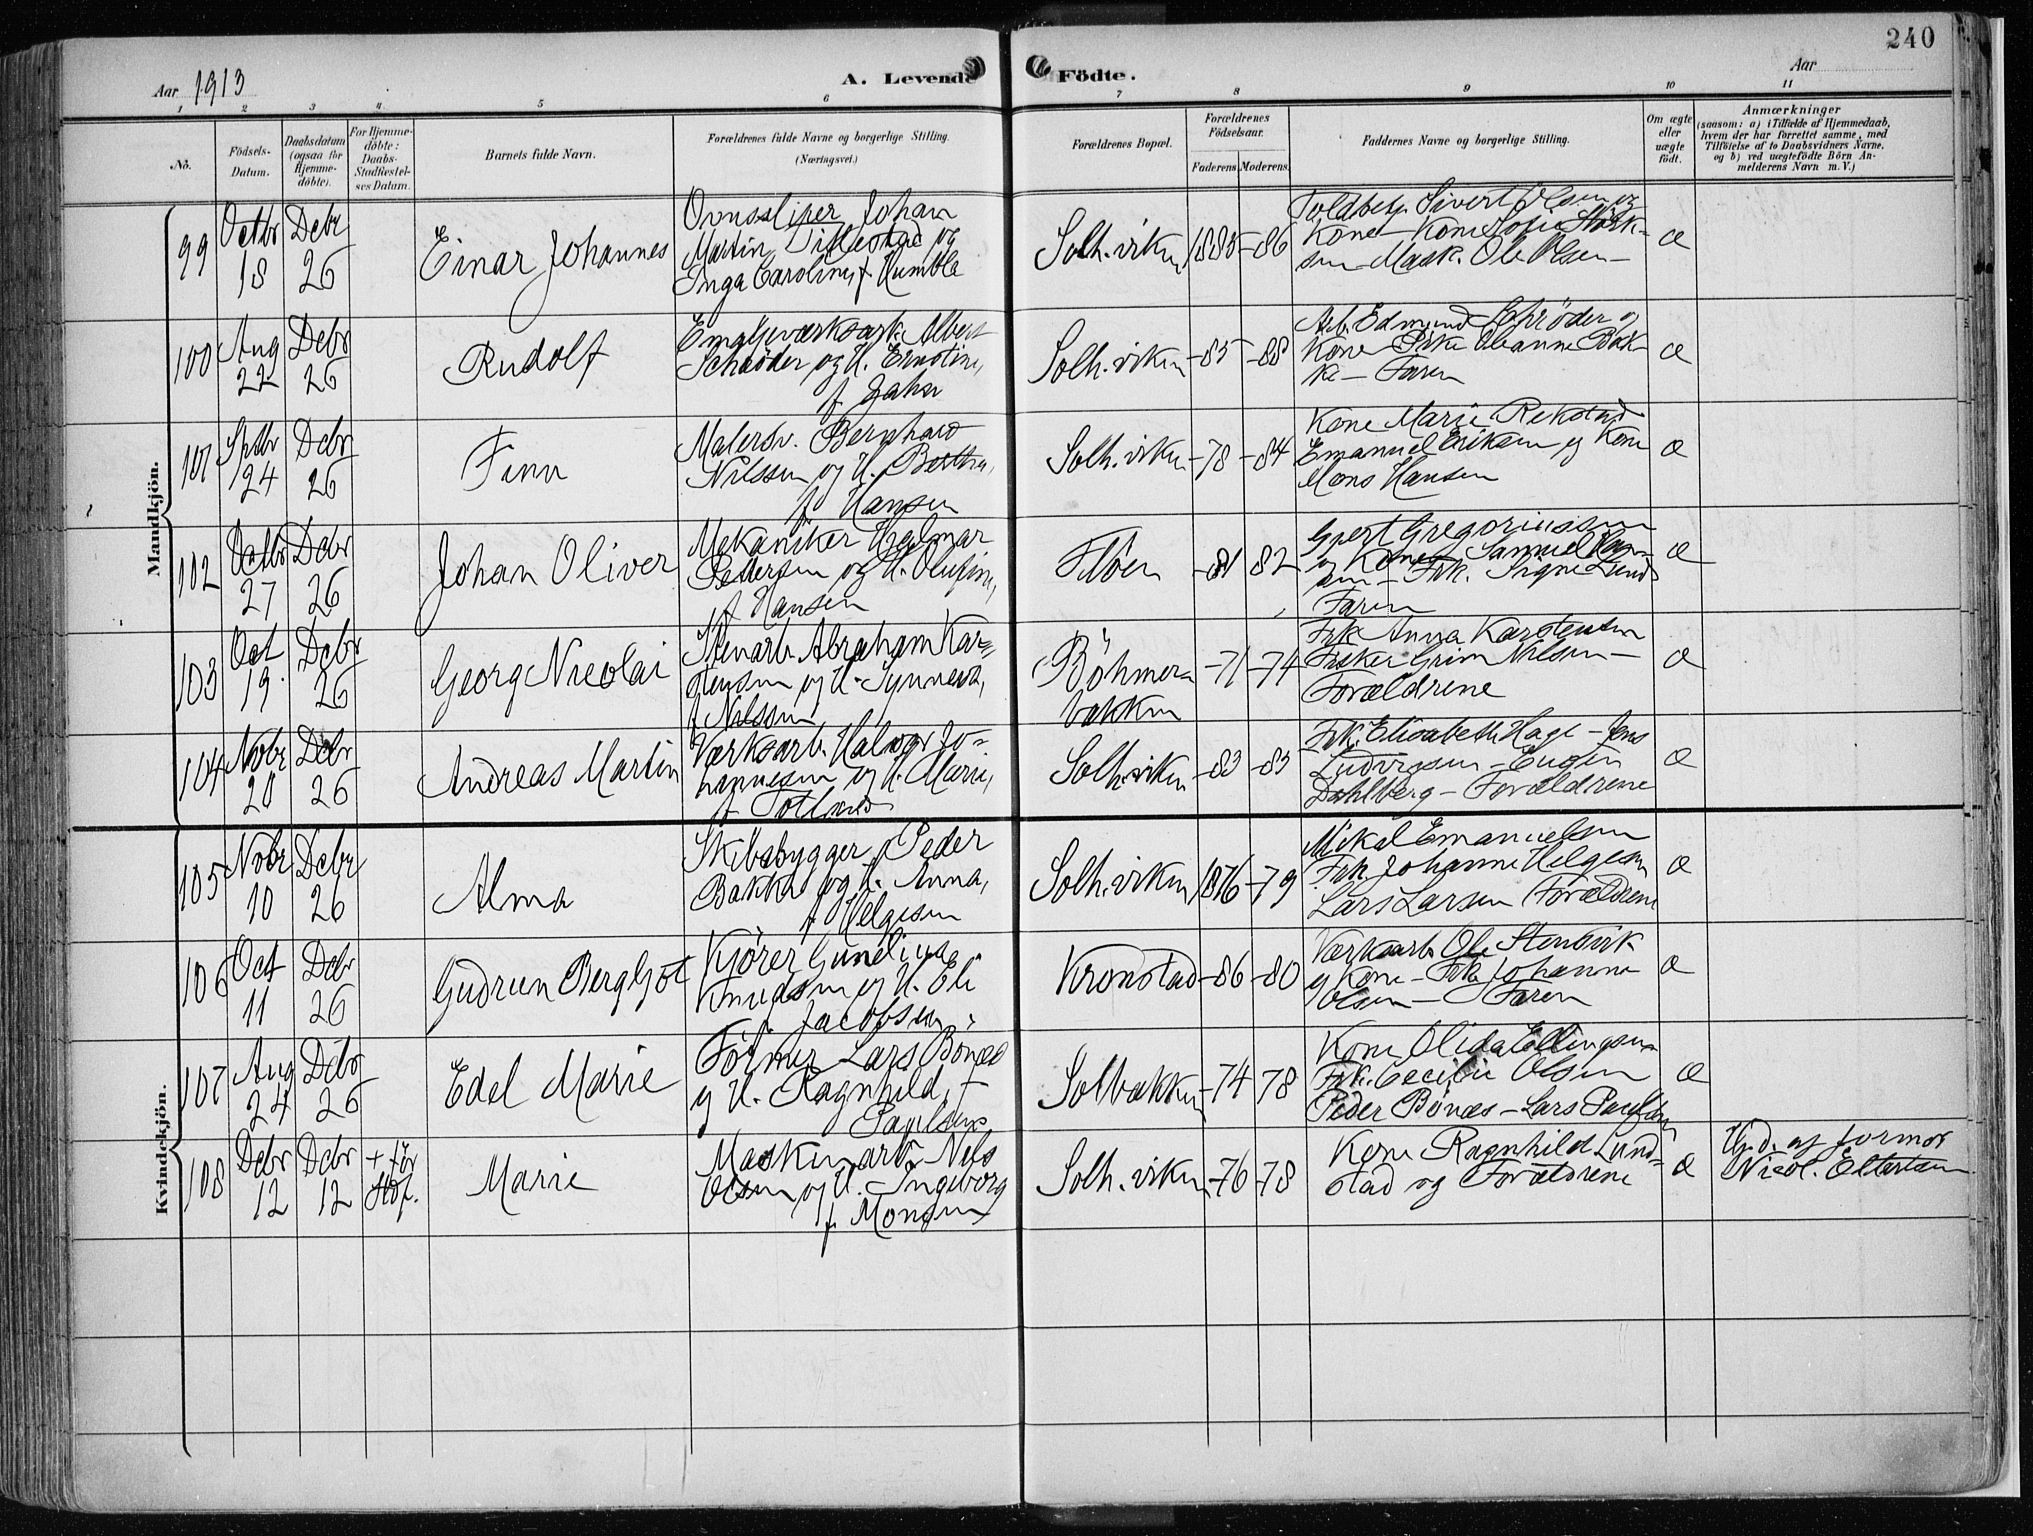 240
Aar 1913
A. Levende Födte.
Aar
1 2 3 4 5 6 7 8 9 10 11
No.
Födsels-Datum.
Daabsdatum (ogsaa for Hjemme-döbte).
For Hjemme-döbte: Daabs-Stadfæstel-ses Datum.
Barnets fulde Navn.
Forældrenes fulde Navne og borgerlige Stilling. (Næringsvei.)
Forældrenes Bopæl.
Forældrenes Födselsaar.
Faderens. Moderens.
Faddernes Navne og borgerlige Stilling.
Om ægte eller uægte födt.
Anmærkninger
(saasom: a) i Tilfælde af Hjemmedaab, hvem der har forrettet samme, med Tilföielse af to Daabsvidners Navne, og b) ved uægtefödte Börn An-melderens Navn m. V.)
Mandkjön.
99 Octbr 18 Debr 26
Einar Johannes
Ovnssliper Johan
Martin og
Inga Caroline, f. Humble
Solh.viken 1885 -86
Toldbetj. Sivert Olsen og
Kone - Kone Sofie
sen - Mask. Ole Olsen -
æ
100 Aug 22 Debr 26
Rudolf
Emaljeværksarb. Albert
Schrøder og H. Ernstine,
f. Jahn
Solh.viken -85 -88
Arb. Edmund Schrøder og
Kone - Pike Oleanne Bak-
ke - Faren
æ
101 Sptbr 24 Debr 26
Finn
Malersv. Bernhard
Nilssen og H. Bertha,
f. Hansen
Solh.viken -78 -84
Kone Marie Rekstad
Emanuel Eriksen og Kone
Mons Hansen
æ
102 Octbr 27 Debr 26
Johan Oliver
Mekaniker Hjalmar
Pettersen og H. Olufine,
f. Hansen
Flöen -81 82
Gjert Gregoriussen
og Kone - Samuel
sen - Frk. Signe Lund
Faren
æ
103 Oct 19. Debr 26
Georg Nicolai
Stenarb. Abraham Kar-
stensen og H. Synneva,
f. Nilssen
Böhmer-
bakken -71 -74
Frk. Anna Karstensen
Fisker Grim Nilsen -
Forældrene
æ
104 Novbr 20 Debr 26
Andreas Martin
Værksarb. Halvor Jo-
hannesen og H. Marie,
f. Totland
Solh.viken -83 -85
Frk. Elisabeth Hage - Jens
Ludvigsen - Eugen
Dahlberg - Forældrene
æ
Kvindekjön.
105 Novbr 10 Debr 26
Alma
Skibsbygger Peder
Bakke og H. Anna,
f. Helgesen
Solh.viken 1876 -79
Mikal Emanuelsen
Frk. Johanne Helgesen
Lars Larsen Forældrene
æ
106 Oct 11 Debr 26
Gudrun Bergljot
Kjører Gundius
Knudsen og H. Eli
f. Jacobsen
Kronstad -86 -80
Værksarb. Ole Stenvik
og Kone - Frk. Johanne
Olsen - Faren
æ
107 Aug 24 Debr 26
Edel Marie
Former Lars Bönæs
og H. Ragnhild, f.
Paulsen
Solbakken -74 78
Kone Olida Ellingsen
Frk. Cecilie Olsen
Peder Bönæs - Lars Paulsen
æ
108 Debr 12 Debr 12 + før Stdf.
Marie
Maskinarb. Nels
Olsen og H. Ingeborg
f. Monsen
Solh.viken -76 -78
Kone Ragnhild Lund-
stad og Forældrene
æ
af Jormor
Nicol.